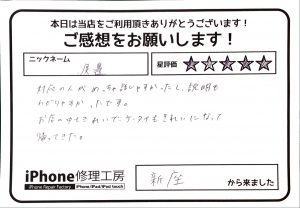 本日は当店をご利用頂きありがとうございます!
ご感想をお願いします!
ニックネーム
渡邉
星評価 ★★★★★
対応の人がめっちゃ話しやすかったし、説明も
わかりやすかったです。
お店の中もきれいでケータイもきれいになって
帰ってきた。
iPhone修理工房
iPhone Repair Factory iPhone/iPad/iPod touch
新座
から来ました